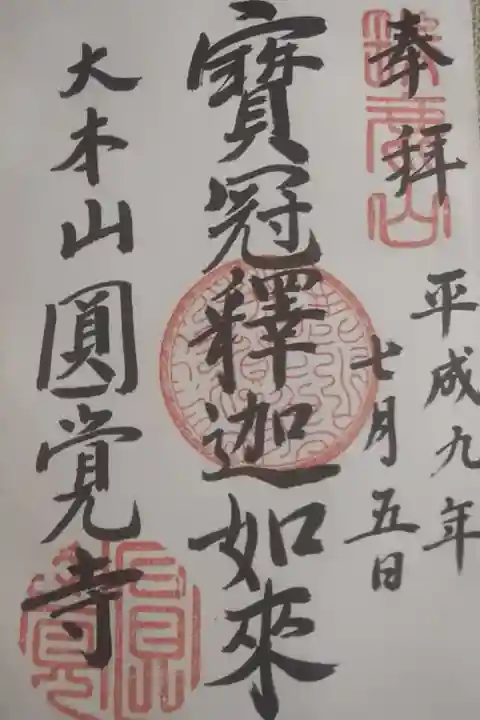 奉拝
平成九年
七月五日
寶冠釋迦如來
大本山圓覚寺